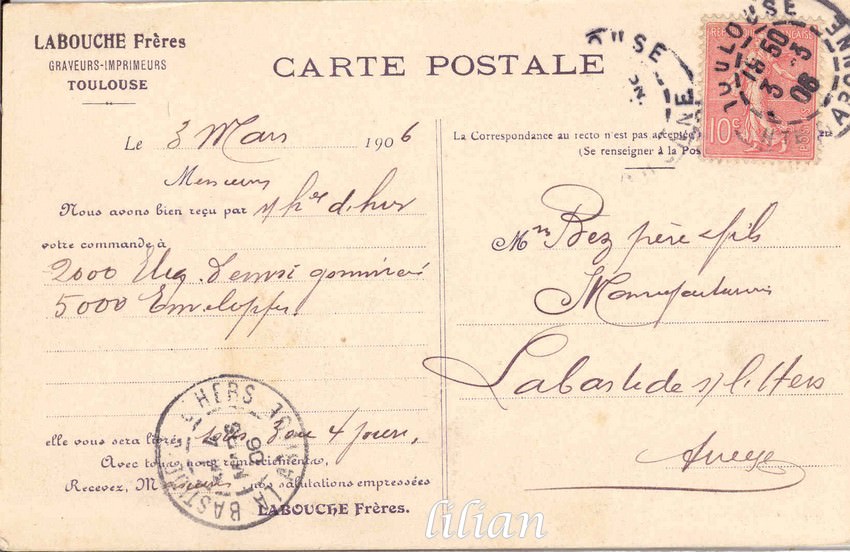 LABOUCHE Frères
GRAVEURS-IMPRIMEURS
TOULOUSE
CARTE POSTALE
Le 3 Mars 1906
Messieurs
Nous avons bien reçu par d'hier
votre commande à
2000 Etiq. gommées
5000 Enveloppes
elle vous sera livrée sous 3 ou 4 jours,
Avec tous nos remerciements,
Recevez, Messieurs nos salutations empressées
LABOUCHE Frères.
La Correspondance au recto n'est pas acceptée
(Se renseigner à la Pos
REPUBLIQUE FRANÇAISE
10c
TOULOUSE
18 50
3 - 3
06
HTE GARONNE
Mrs Bez père & fils
Manufacturiers
Labastide s/ l'Hers
Ariège
LA BASTIDE S L'HERS
ARIEGE
4
MARS
06
lilian